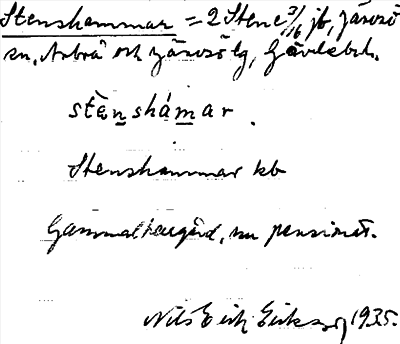 Stenshammar = 2 Stene 3/16 jb, Järvsö
sn, Arbrå och Järvsö lg, Gävlebel.
stènshámar.
Stenshammar kb
Gammal herrgård, nu pensionat.
Nils Erik Eriksson, 1935.